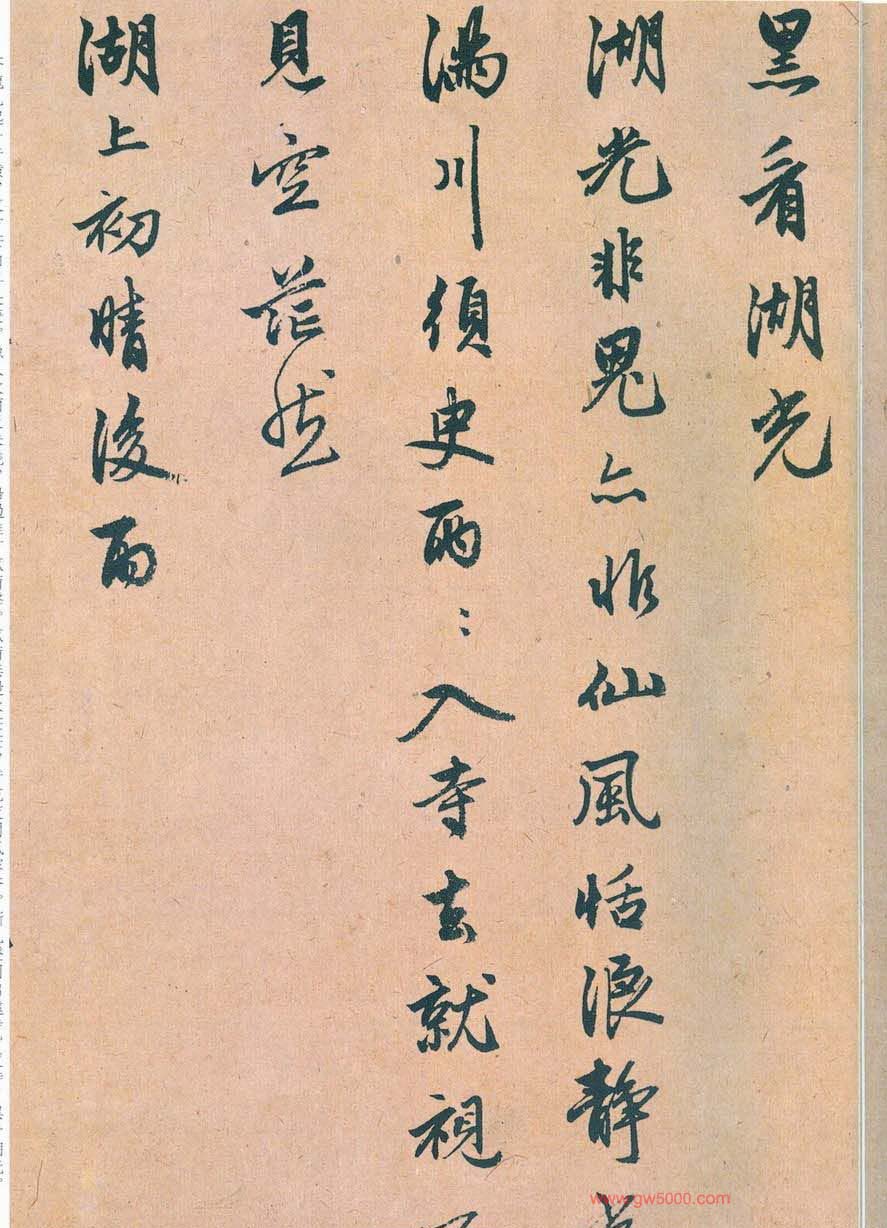 黑看湖光
湖光非鬼亦非仙風恬浪靜
滿川須臾兩〻入寺去就視
見空茫然
湖上初晴後雨
www.gw5000.com